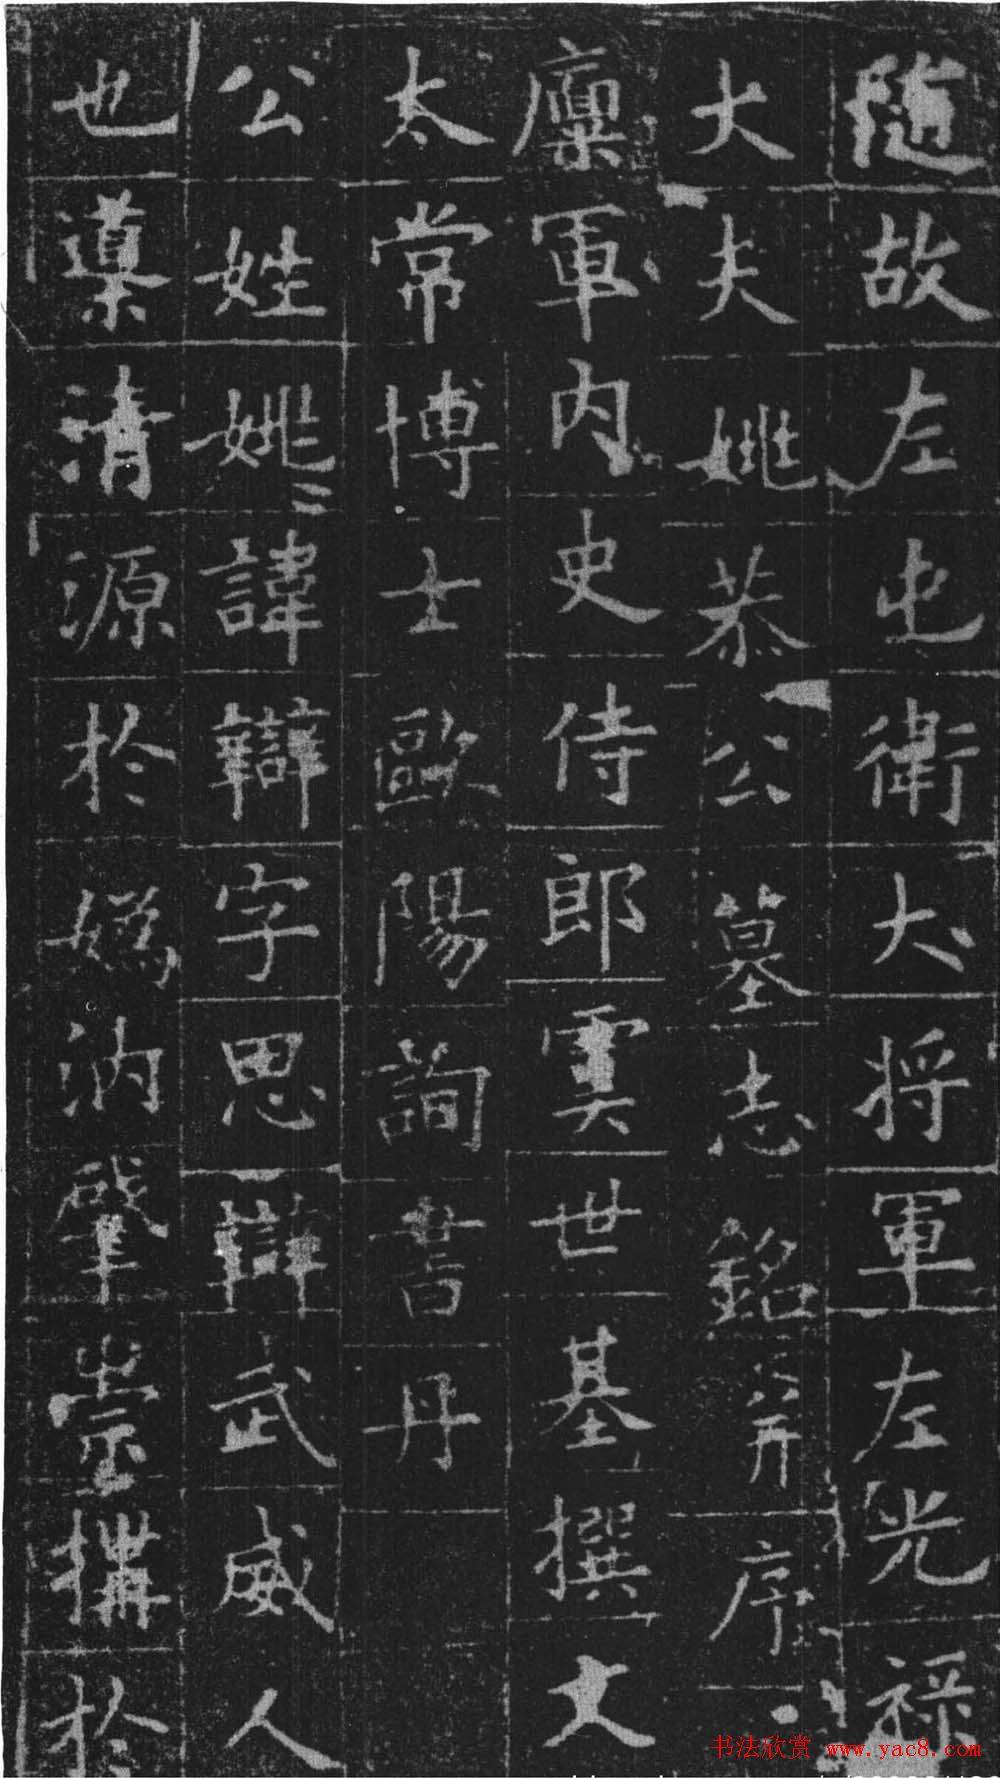 随故左屯衛大将軍左光祿
大夫姚恭公墓志銘并序
稟軍內史侍郎虞世基撰文
太常博士歐陽詢書丹
公姓姚諱辯字思辯武威人
也導清源於媯汭肇崇構於
书法欣赏 www.yac8.com